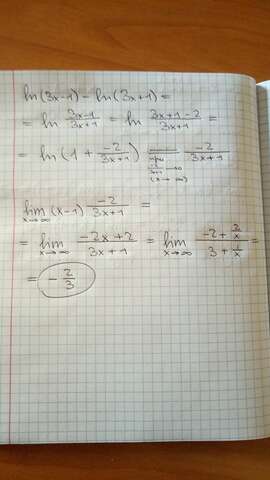 ln(3x-1) - ln(3x+1) =
= ln \frac{3x-1}{3x+1} = ln \frac{3x+1-2}{3x+1} =
= ln (1 + \frac{-2}{3x+1}) \frac{-2}{3x+1}
при
\frac{-2}{3x+1} → 0
(x → ∞)
lim_{x→∞} (x-1) \frac{-2}{3x+1} =
= lim_{x→∞} \frac{-2x+2}{3x+1} = lim_{x→∞} \frac{-2+\frac{2}{x}}{3+\frac{1}{x}} =
= -\frac{2}{3}